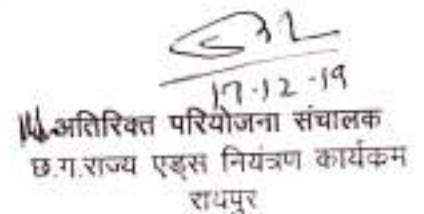 17-12-19
अतिरिक्त परियोजना संचालक
छ.ग.राज्य एड्स नियंत्रण कार्यकम
रायपुर